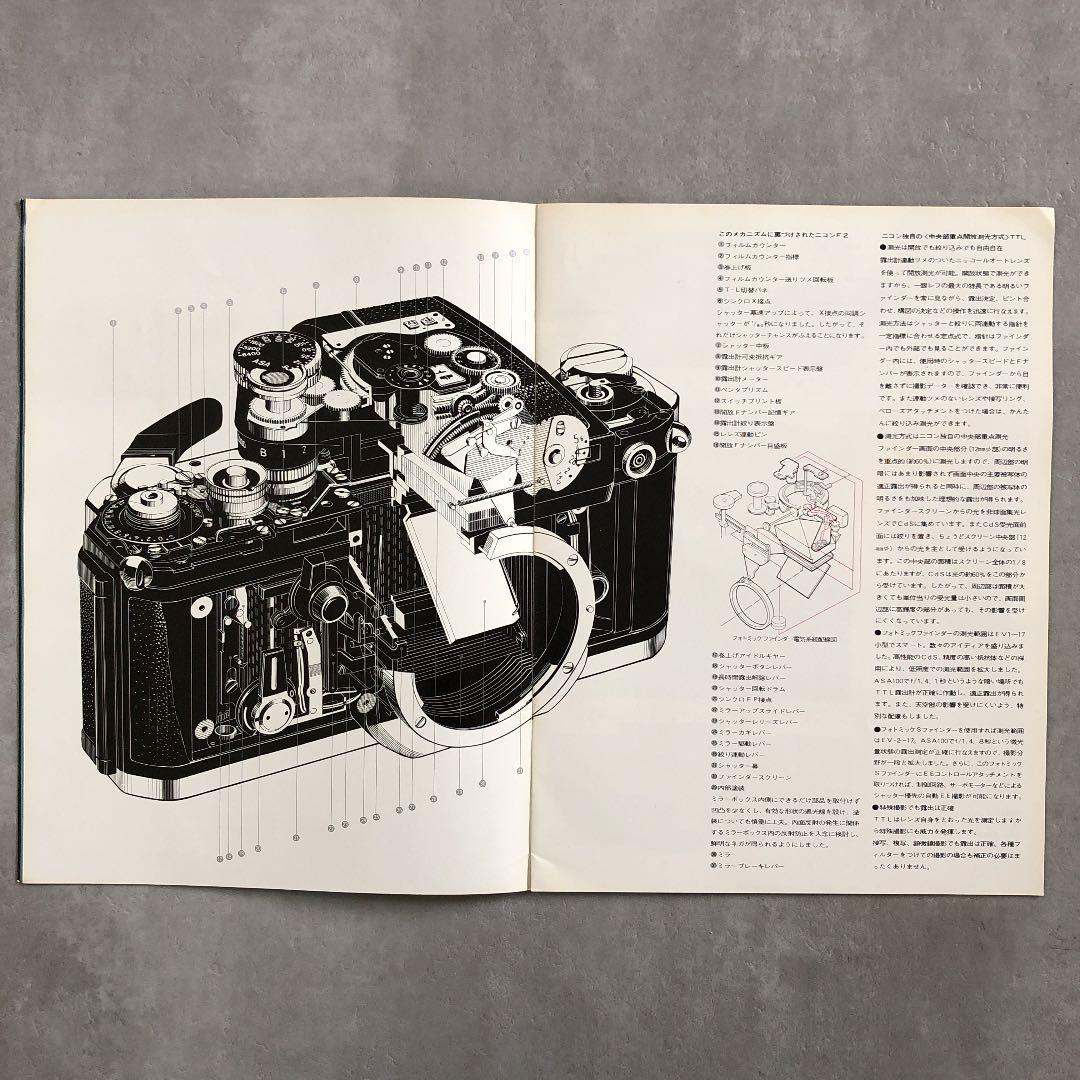 このメカニズムに裏づけされたニコンF2
①フィルムカウンター
②フィルムカウンター指標
③巻上げ板
④フィルムカウンター送りツメ回転板
⑤T-L切替バネ
⑥シンクロX接点
シャッター幕速アップによって、X接点の同調シ
ャッターが1/80秒になりました。したがって、そ
れだけシャッターチャンスがふえることになります。
⑦シャッター中板
⑧露出計可変抵抗ギア
⑨露出計シャッタースピード表示盤
⑩露出計メーター
⑪ペンタプリズム
⑫スイッチプリント板
⑬開放Fナンバー記憶ギア
⑭露出計絞り表示盤
⑮レンズ連動ピン
⑯開放Fナンバー目盛板
フォトミックファインダー電気系統配線図
⑰巻上げアイドルギヤー
⑱シャッターボタンレバー
⑲長時間露出解除レバー
⑳シャッター回転ドラム
㉑シンクロFP接点
㉒ミラーアップスライドレバー
㉓シャッターレリーズレバー
㉔ミラーカギレバー
㉕ミラー駆動レバー
㉖絞り連動レバー
㉗シャッター幕
㉘ファインダースクリーン
㉙内部塗装
ミラーボックス内側にできるだけ部品を取付けず
凹凸を少なくし、有効な形状の遮光線を設け、塗
装についても慎重に工夫。内面反射の発生に関係
するミラーボックス内の反射防止を入念に検討し、
鮮明なネガが得られるようにしました。
㉚ミラー
㉛ミラーブレーキレバー
ニコン独自の〈中央部重点開放測光方式〉TTL
●測光は開放でも絞り込みでも自由自在
露出計連動ツメのついたニッコールオートレンズ
を使って開放測光が可能。開放状態で測光ができ
ますから、一眼レフの最大の特長である明るいフ
ァインダーを常に見ながら、露出決定、ピント合
わせ、構図の決定などの操作を迅速に行なえます。
測光方法はシャッターと絞りに両連動する指針を
一定指標に合わせる定点式で、指針はファインダ
ー内でも外部でも見ることができます。ファイン
ダー内には、使用時のシャッタースピードとFナ
ンバーが表示されますので、ファインダーから目
を離さずに撮影データーを確認でき、非常に便利
です。また連動ツメのないレンズや接写リング、
ベローズアタッチメントをつけた場合は、かんた
んに絞り込み測光ができます。
●測光方式はニコン独自の中央部重点測光
ファインダー画面の中央部分(12mmφ部)の明るさ
を重点的(約60%)に測光しますので、周辺部の明
暗にはあまり影響されず画面中央の主要被写体の
適正露出が得られると同時に、周辺部の被写体の
明るさをも加味した理想的な露出が得られます。
ファインダースクリーンからの光を非球面集光レ
ンズでCdSに集めています。またCdS受光面前
面には絞りを置き、ちょうどスクリーン中央部(12
mmφ)からの光を主として受けるようになってい
ます。この中央部の面積はスクリーン全体の1/8
にあたりますが、CdSは光の約60%をこの部分か
ら受けています。したがって、周辺部は面積が大
きくても単位当りの受光量は小さいので、画面周
辺部に高輝度の部分があっても、その影響を受け
にくくなっています。
●フォトミックファインダーの測光範囲はEV1—17
小型でスマート。数々のアイディアを盛り込みま
した。高性能のCdS、精度の高い抵抗体などの採
用により、低照度での測光範囲を拡大しました。
ASA100でf/1.4、1秒というような暗い場所でも
TTL露出計が正確に作動し、適正露出が得られ
ます。また、天空部の影響を受けにくいよう、特
別な配慮もしました。
●フォトミックSファインダーを使用すれば測光範囲
はEV-2—17。ASA100でf/1.4、8秒という微光
量状態の露出測定が正確に行なえますので、撮影分
野が一段と拡大しました。さらに、このフォトミック
SファインダーにEEコントロールアタッチメントを
取りつければ、制御回路、サーボモーターなどによる
シャッター優先の自動EE撮影が可能になります。
●特殊撮影でも露出は正確
TTLはレンズ自身をとおった光を測定しますか
ら特殊撮影にも威力を発揮します。
接写、複写、顕微鏡撮影でも露出は正確。各種フ
ィルターをつけての撮影の場合も補正の必要はま
ったくありません。